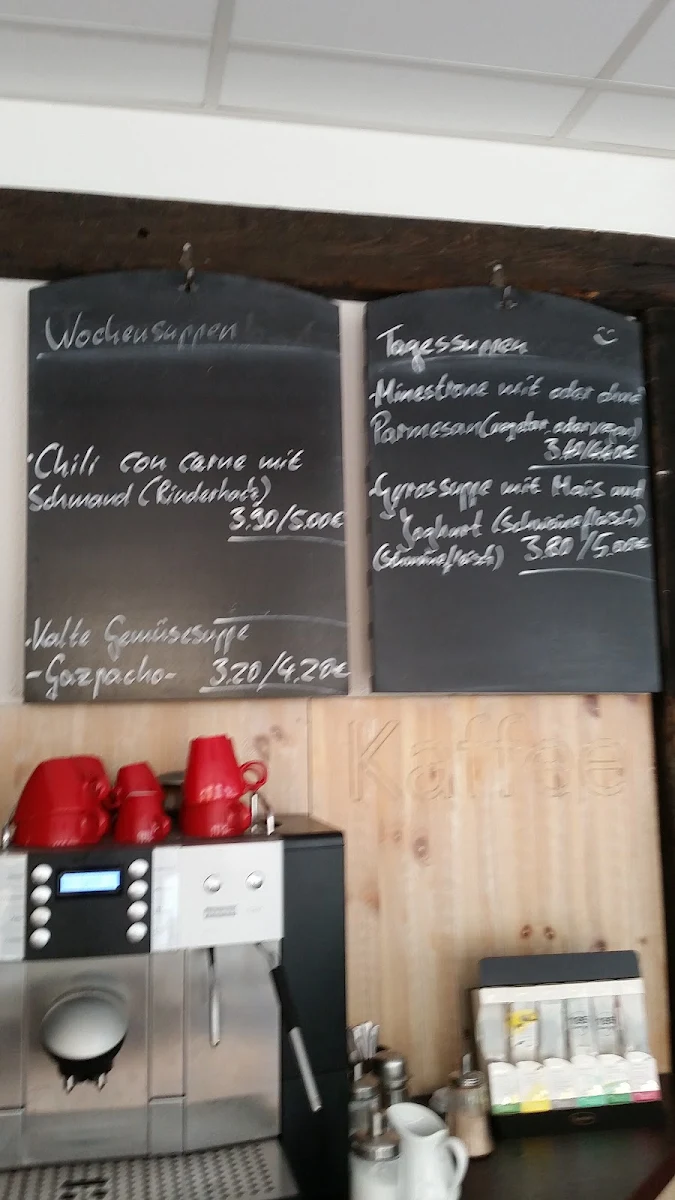 Wochensuppen
·Chili con carne mit
Schmand (Rinderhack)
3.90/5.00€
·Kalte Gemüsesuppe
-Gazpacho- 3.20/4.20€
Tagessuppen
·Minestrone mit oder ohne
Parmesan (vegetar. oder vegan)
3.40/4.40€
·Gyrossuppe mit Mais und
Joghurt (Schweinefleisch)
(Schweinefleisch) 3.80/5.00€
Kaffee